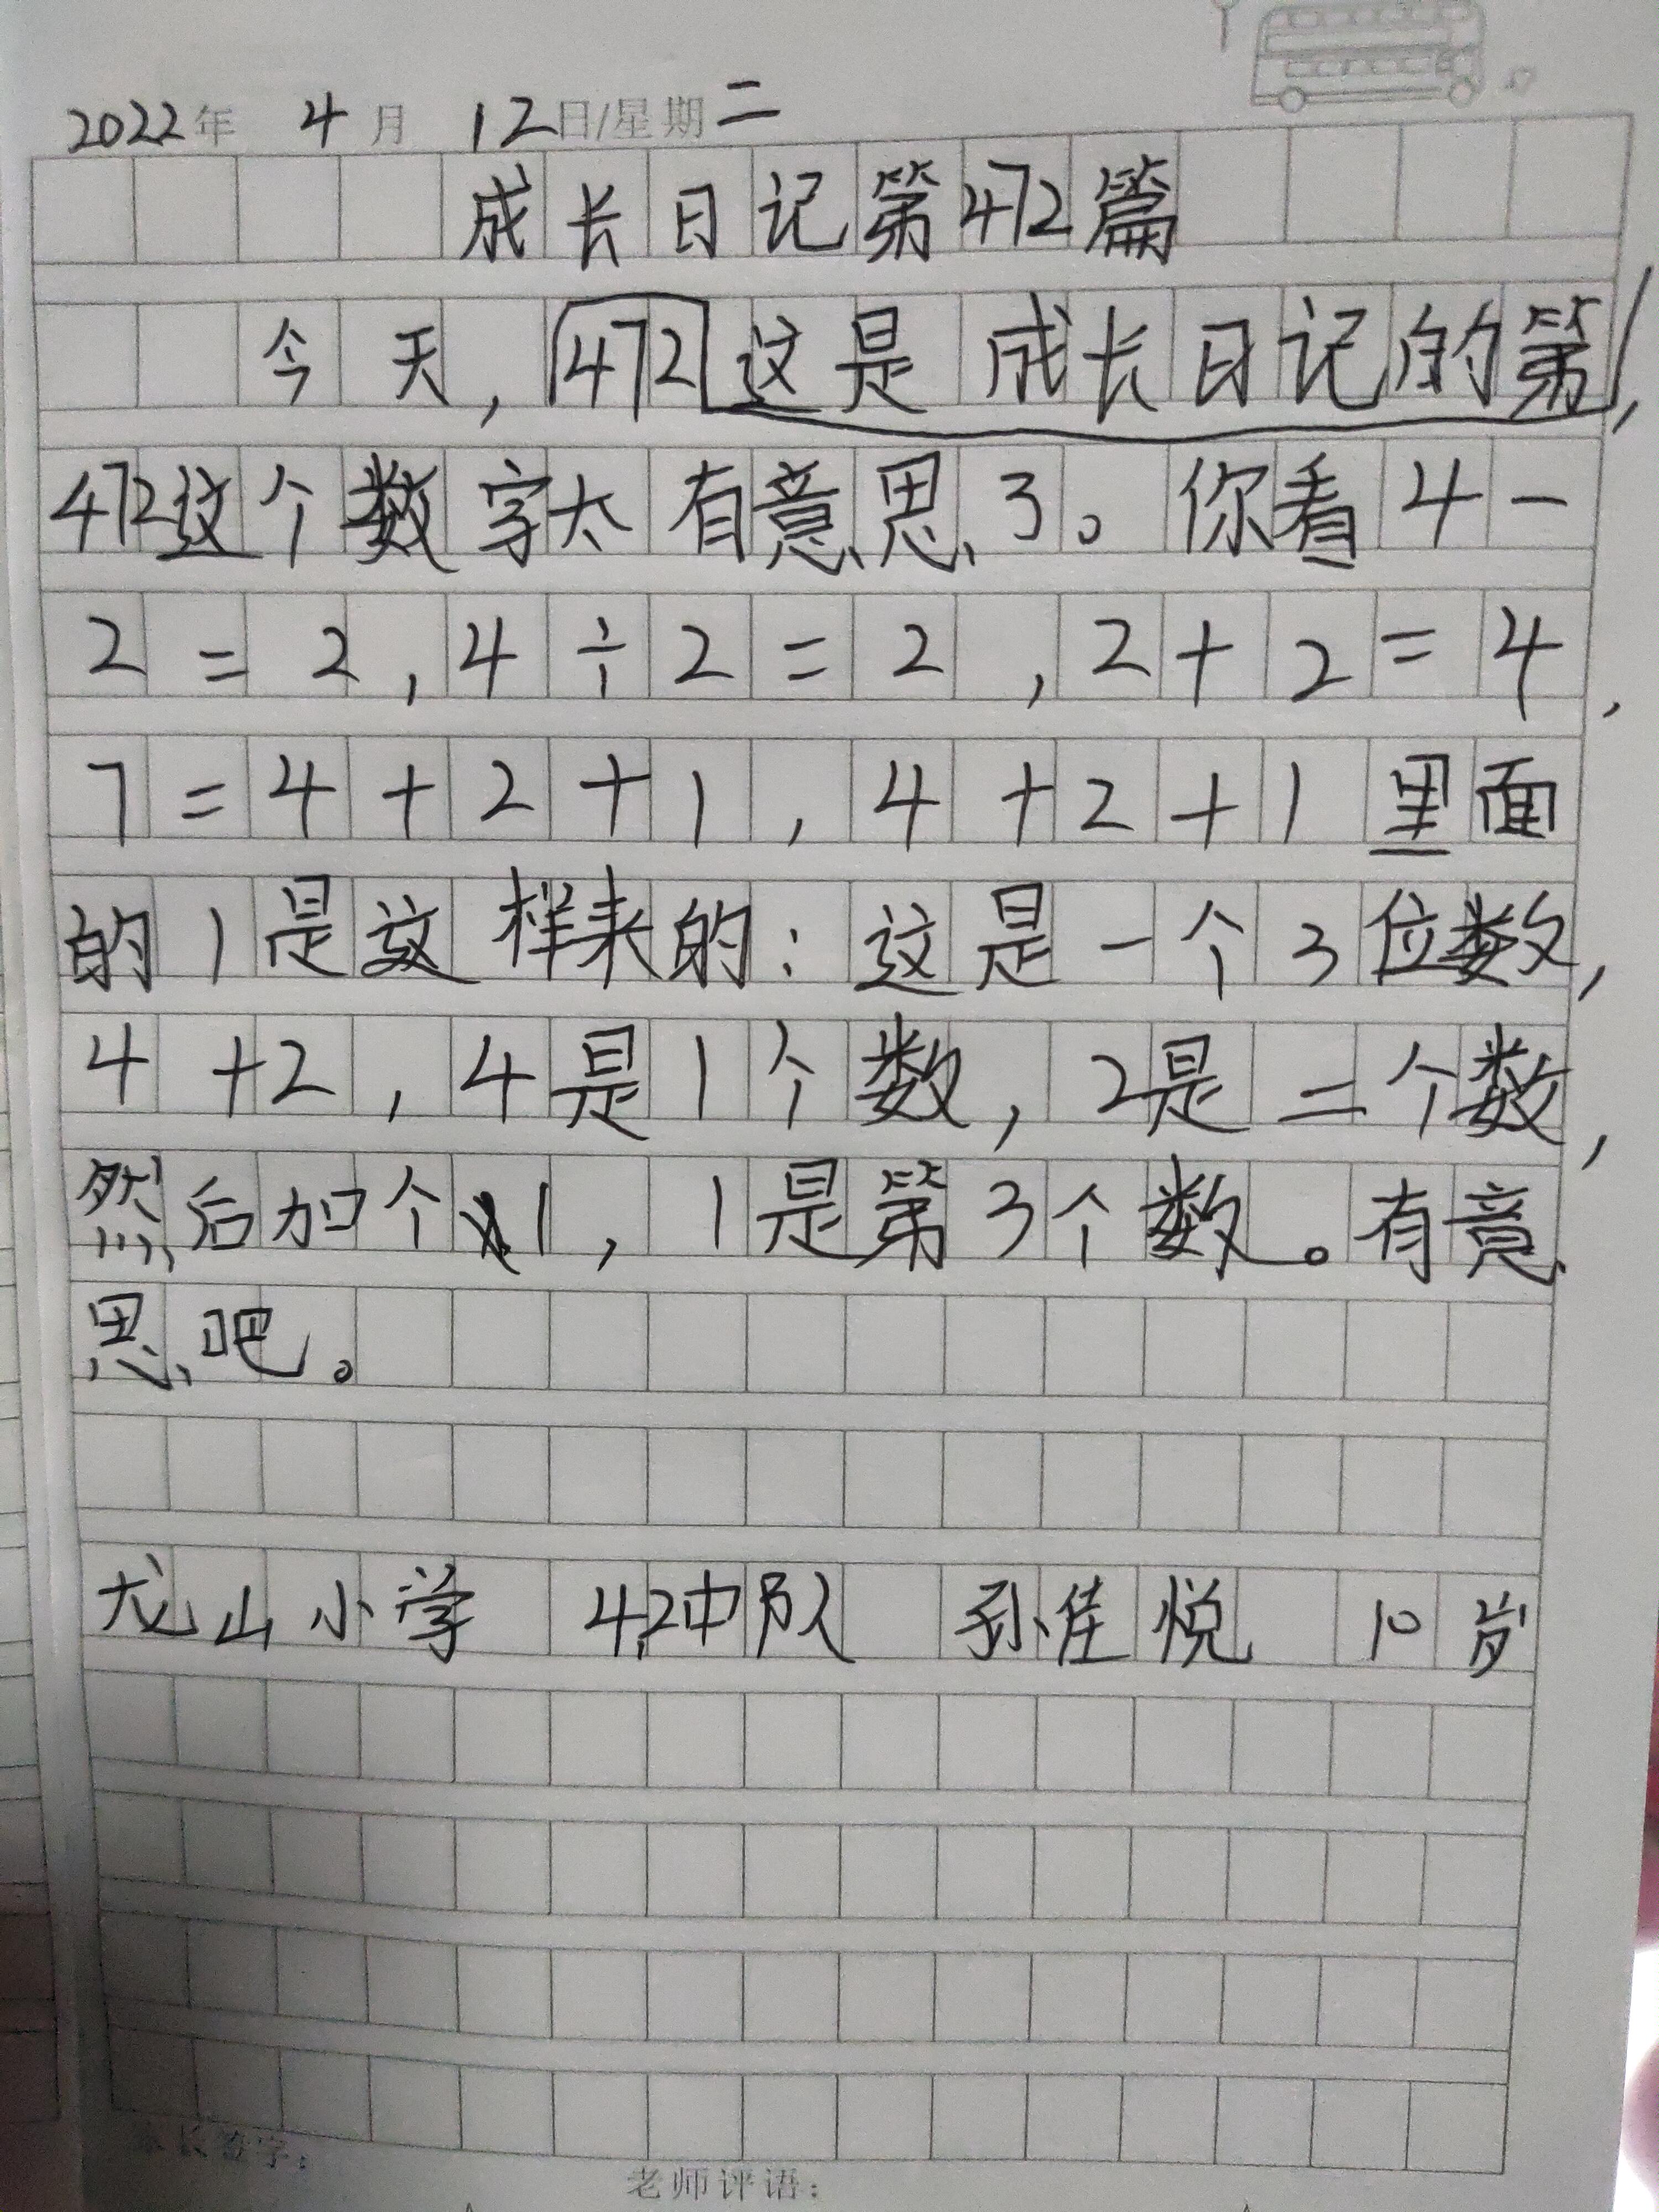 2022年 4月 12日/星期二
成长日记第472篇
今天,472这是成长日记的第,
472这个数字太有意思了。你看4-
2=2,4÷2=2,2+2=4,
7=4+2+1,4+2+1里面
的1是这样来的:这是一个3位数,
4+2,4是1个数,2是二个数,
然后加个1,1是第3个数。有意
思吧。
龙山小学 4.2中队 孙佳悦 10岁
家长签字:
老师评语: